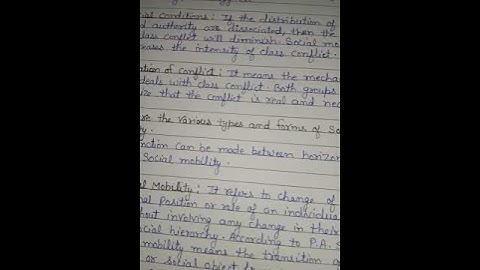 ial conditions: If the distribution of
d authority are dissociated, then the
lass conflict will diminish. Social mo
eases the intensity of class conflict.
ation of conflict: It means the mecha
deals with class conflict. Both groups
ize that the conflict is real and nec
the various types and forms of So
y.
nction can be made between horizon
Social mobility.
al Mobility: It refers to change of
nal position or role of an individua
hout involving any change in their
cial hierarchy. According to P.A. S
mobility means the transition o
or social object